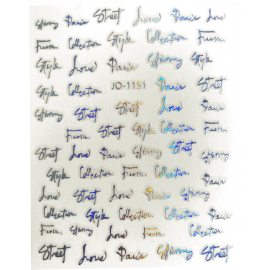 Skinny Street Love Paris Love
Fusion Collection Style Collection
Style Love Paris Skinny Style
Style Collection JO-1151 Paris
Skinny Street Street Love Paris
Fusion Street Style Collection Fusion
Style Love Paris Skinny Street
Fusion Collection Fusion Collection
Style Collection Street Love
Collection Style Collection Paris Skinny
Fusion Skinny Love Fusion Collection
Street Love Paris Skinny Street